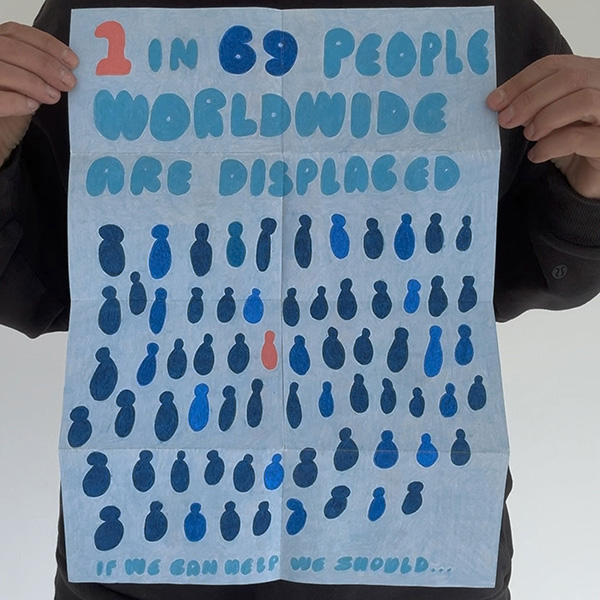 1 IN 69 PEOPLE
WORLDWIDE
ARE DISPLACED
IF WE CAN HELP WE SHOULD...